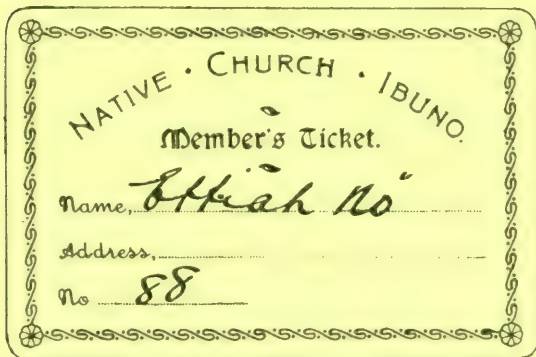 NATIVE · CHURCH · IBUNO.
Member's Ticket.
Name, Effiah No
Address,
No 88